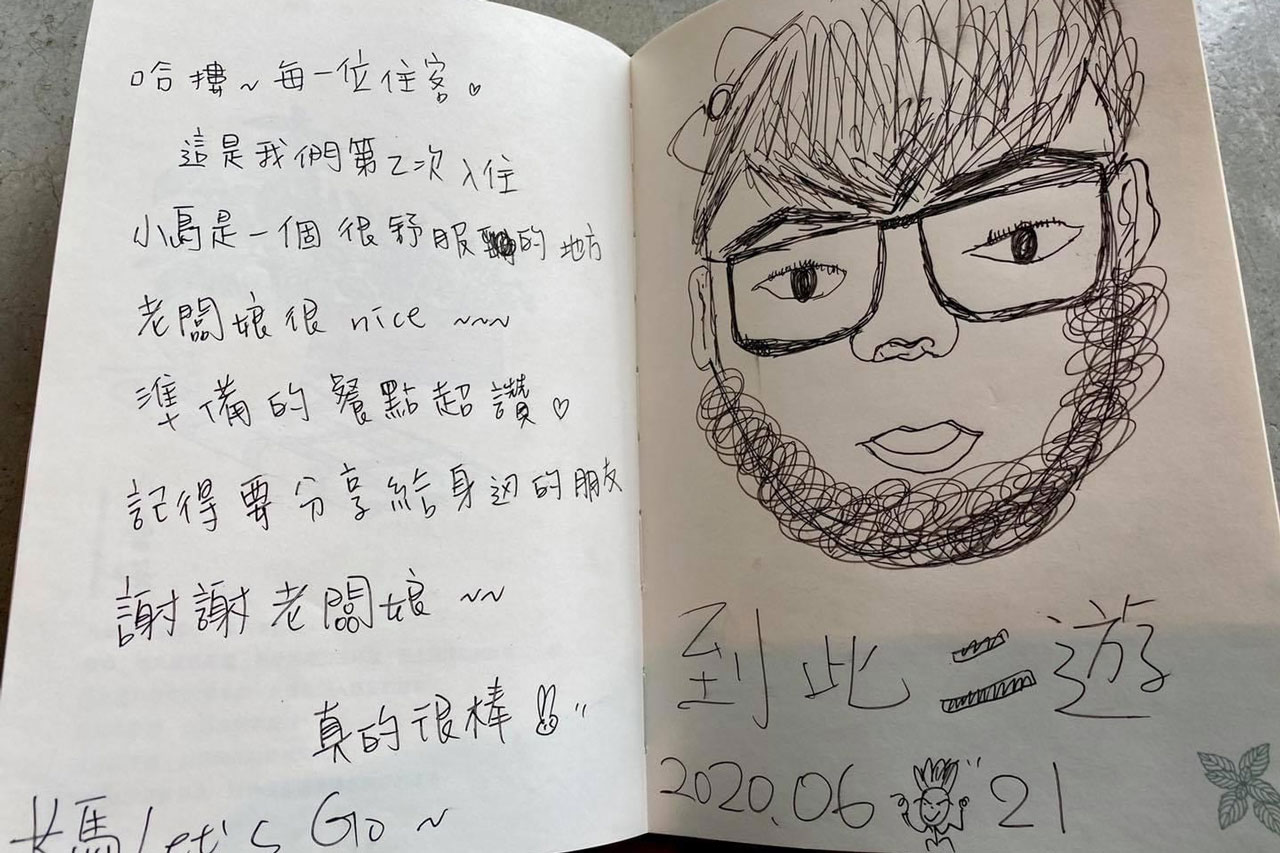 哈摟~每一位住客♡
這是我們第2次入住
小島是一個很舒服的地方
老闆娘很 nice ~~~
準備的餐點超讚♡
記得要分享給身边的朋友
謝謝老闆娘 ~~
真的很棒
馬 Let's Go ~
到此二遊
2020.06 21